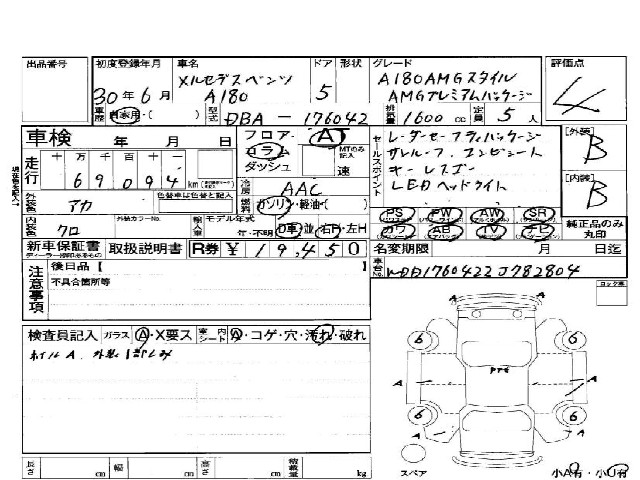 出品番号 初度登録年月 車名 ドア 形状 グレード 評価点
メルセデスベンツ A180AMGスタイル
30年6月 A180 5 AMGプレミアムパッケージ 4
車歴 自家用・( ) 型式 DBA-176042 排気量 1600cc 定員 5人
車検 年 月 日 フロア・AT セールスポイント レーダーセーフティパッケージ [外装]
コラム MTのみ記入 サンルーフ B
走行 十 万 千 百 十 一 ダッシュ 速 キーレスゴー
69094 km 冷房 AAC LEDヘッドライト [内装]
外装色 アカ 色替車は色替と記入 燃料 ガソリン・軽油・( ) B
外装カラーNo. 輸入車 モデル年式 PS PW AW SR
内装色 クロ 年・不明 D車・並 右H・左H カワ AB TV ナビ 純正品のみ丸印
新車保証書 取扱説明書 R券 ¥19,450 名変期限 月 日迄
ディーラー捺印あるもの
車台No. WDD1760422J782804
注意事項 後日品【 】 ロック車
不具合箇所等
検査員記入 ガラス A・X要ス 室内シート A・コゲ・穴・汚れ・破れ
ホイルA、外装1部しみ
6 6
A A A
6 6
A
長さ cm 幅 cm 高さ cm 積載量 kg
スペア 小A有・小U有